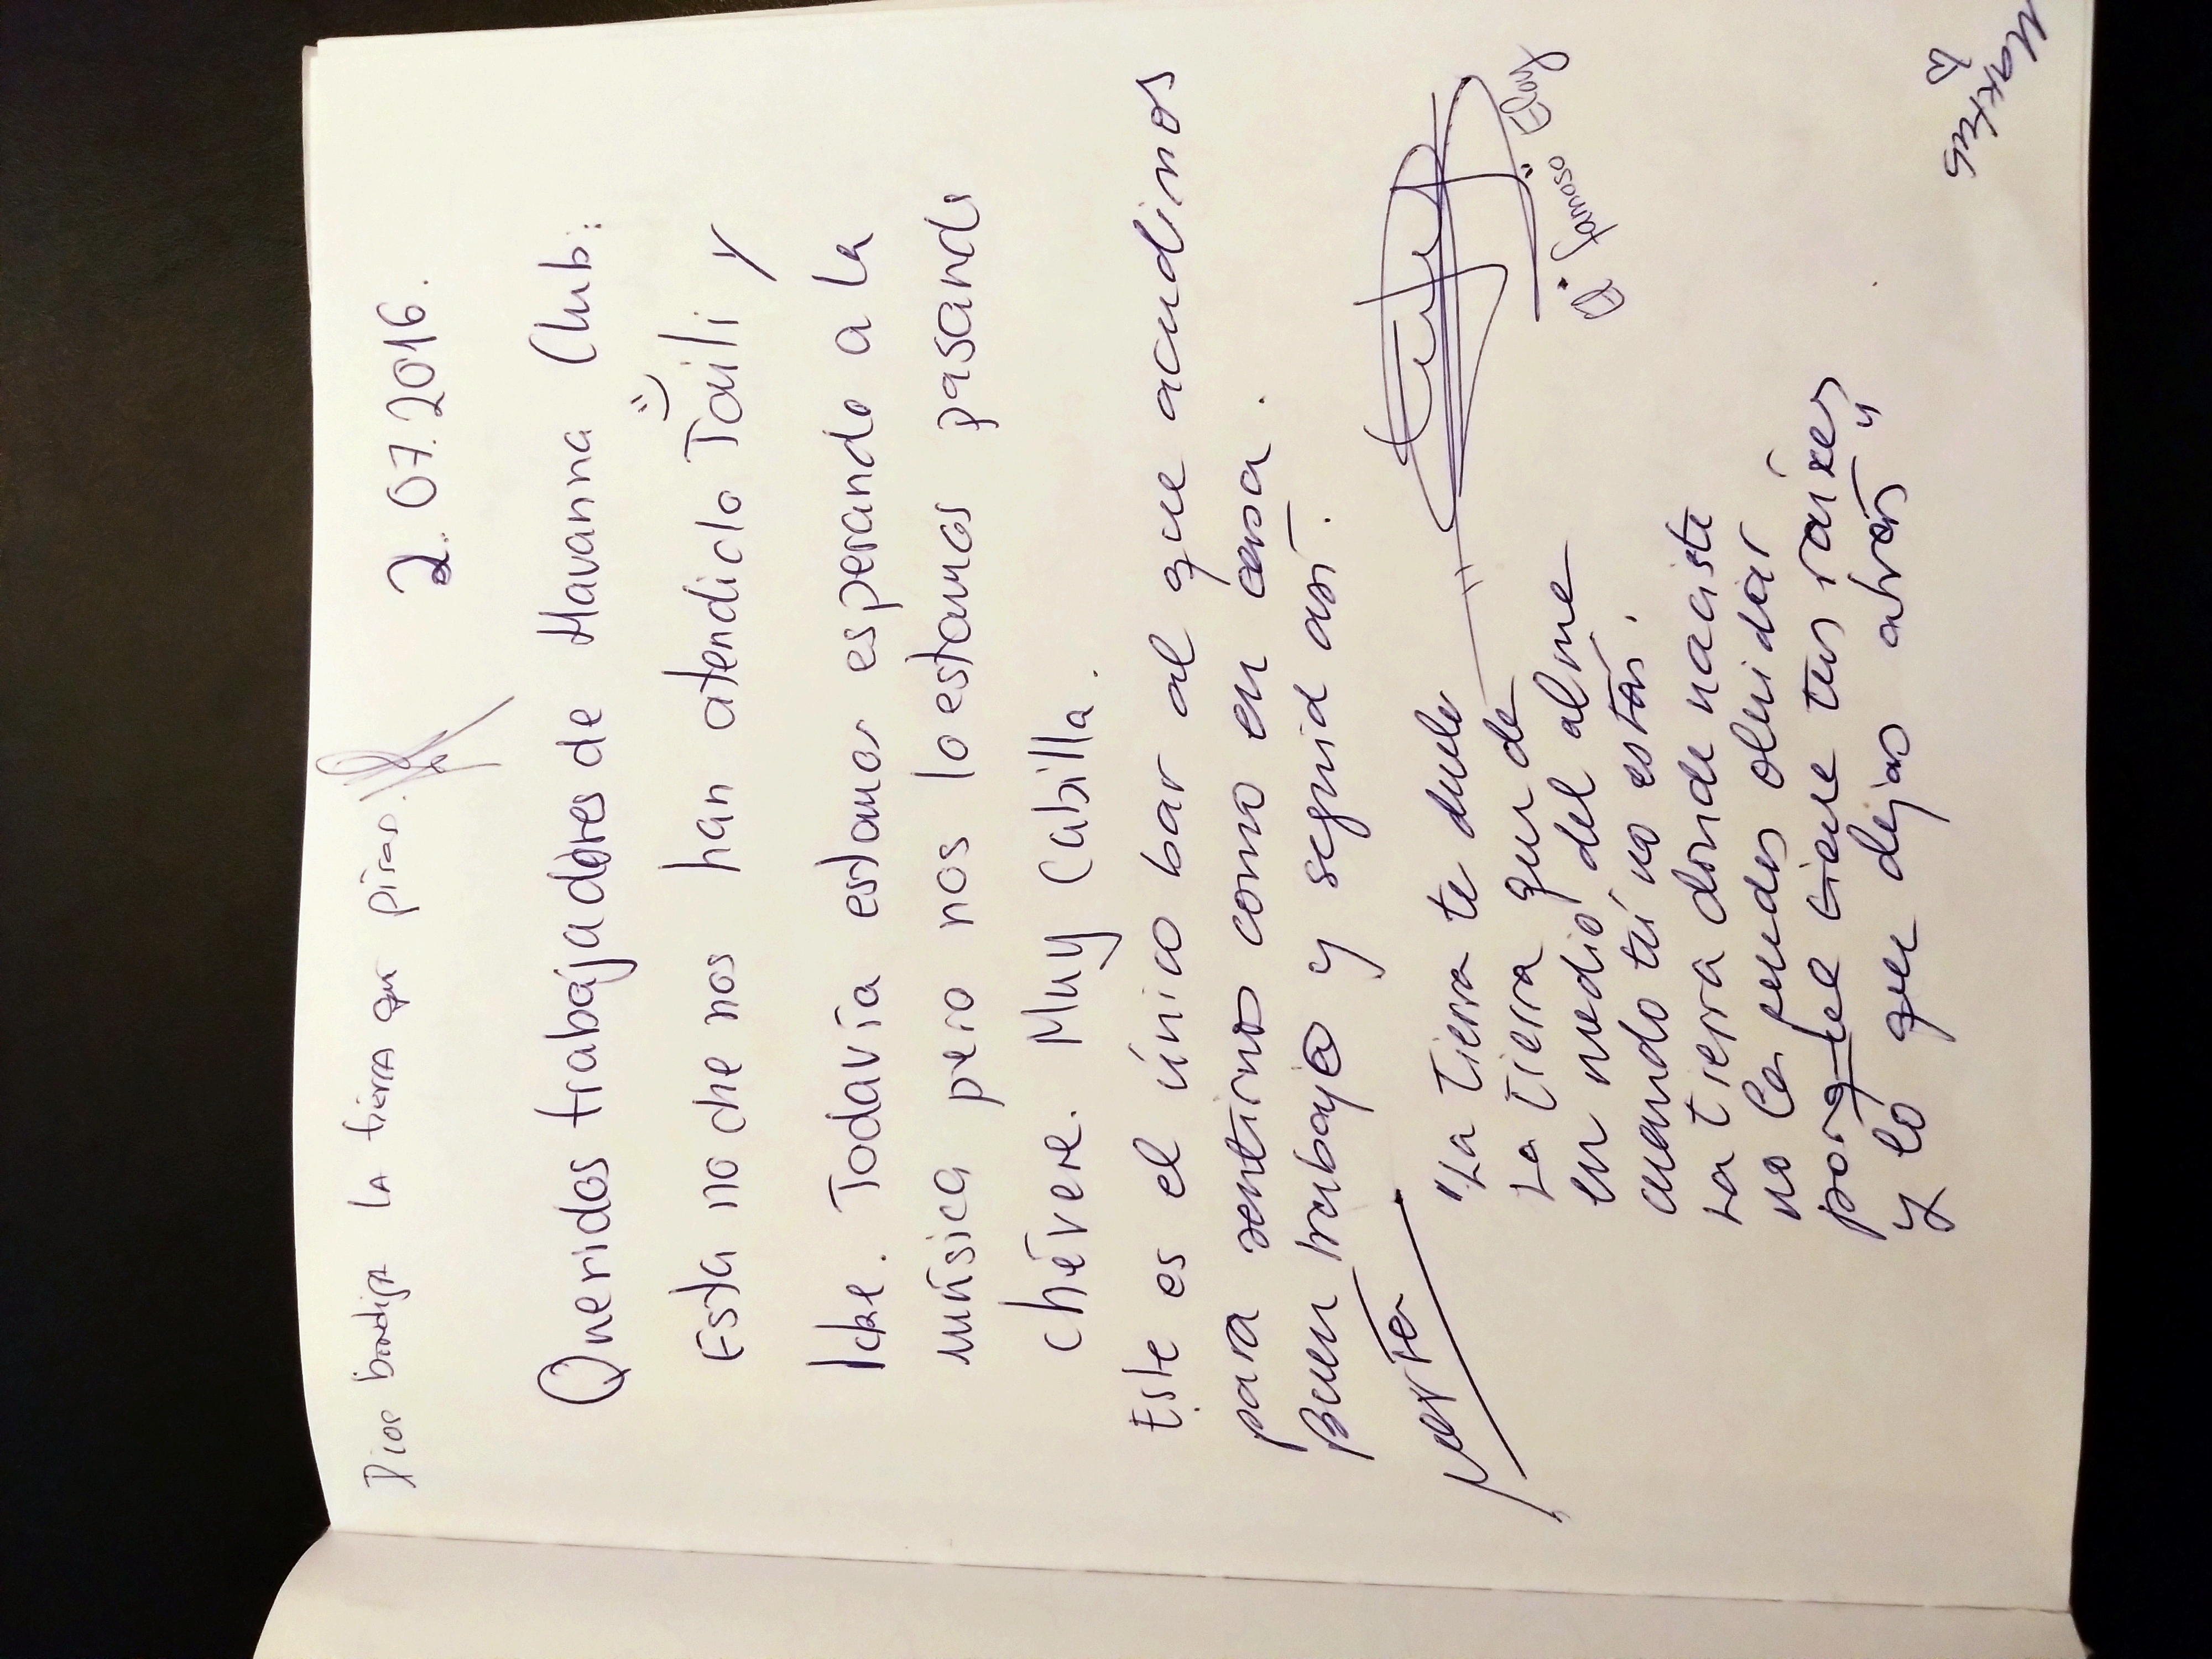 Dios bendiga la tierra que piras.
2.07.2016.
Queridos trabajadores de Havanna Club:
Esta noche nos han atendido Taili y
Icke. Todavía estamos esperando a la
música pero nos lo estamos pasando
chévere. Muy Cabilla.
Este es el único bar al que acudimos
para sentirnos como en casa.
Buen trabajo y seguid así.
"La tierra te duele
La tierra que da
en medio del alma
cuando tú no estás.
La tierra donde naciste
no la puedes olvidar
porque tiene tus raíces
y lo que dejas atrás"
El famoso Eloy